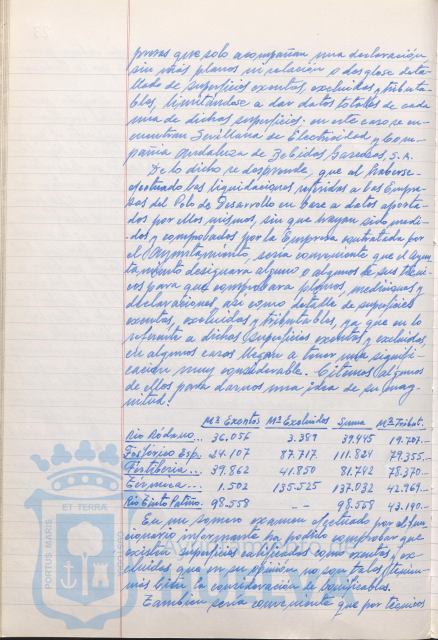 presas que solo acompañan una declaración
sin más planos ni relación o desglose deta-
llado de superficies exentas, excluidas y tributa-
bles, limitándose a dar datos totales de cada
una de dichas superficies. en este caso se en-
cuentran Sevillana de Electricidad y Com-
pañia Andaluza de Bebidas Gaseosas, S.A.
De lo dicho se desprende, que al haberse
efectuado las liquidaciones referidas a las Empre-
sas del Polo de Desarrollo en base a datos aporta-
dos por ellos mismos, sin que hayan sido medi-
dos y comprobados por la Empresa contratada por
el Ayuntamiento, seria conveniente que el Ayun-
tamiento designara alguno o algunos de sus técni-
cos para que comprobara planos, mediciones y
declaraciones, así como detalle de superficies
exentas, excluidas y tributables, ya que en lo
referente a dichas superficies exentas y excluidas,
en algunos casos llegan a tener una signifi-
cación muy considerable. Citemos algunos
de ellos para darnos una idea de su mag-
nitud:
M² Exentos M² Excluidos Suma M² Tribut.
Rio Ródano... 36.056 3.389 39.445 19.707.-
Fosfórico Esp. 24.107 87.717 111.824 79.355.-
Fertiberia... 39.862 41.850 81.742 78.370.-
Térmica... 1.502 135.525 137.032 42.969.-
Rio Tinto Patiño. 98.558 -- 98.558 43.190.-
En un somero examen efectuado por el fun-
cionario informante ha podido comprobar que
existen superficies calificadas como exentas y ex-
cluidas que en su opinión no son tales y tienen
más bien la consideración de bonificables.
Tambien seria conveniente que por técnicos
PORTUS MARIS
ET TERRAE
CUSTODIA